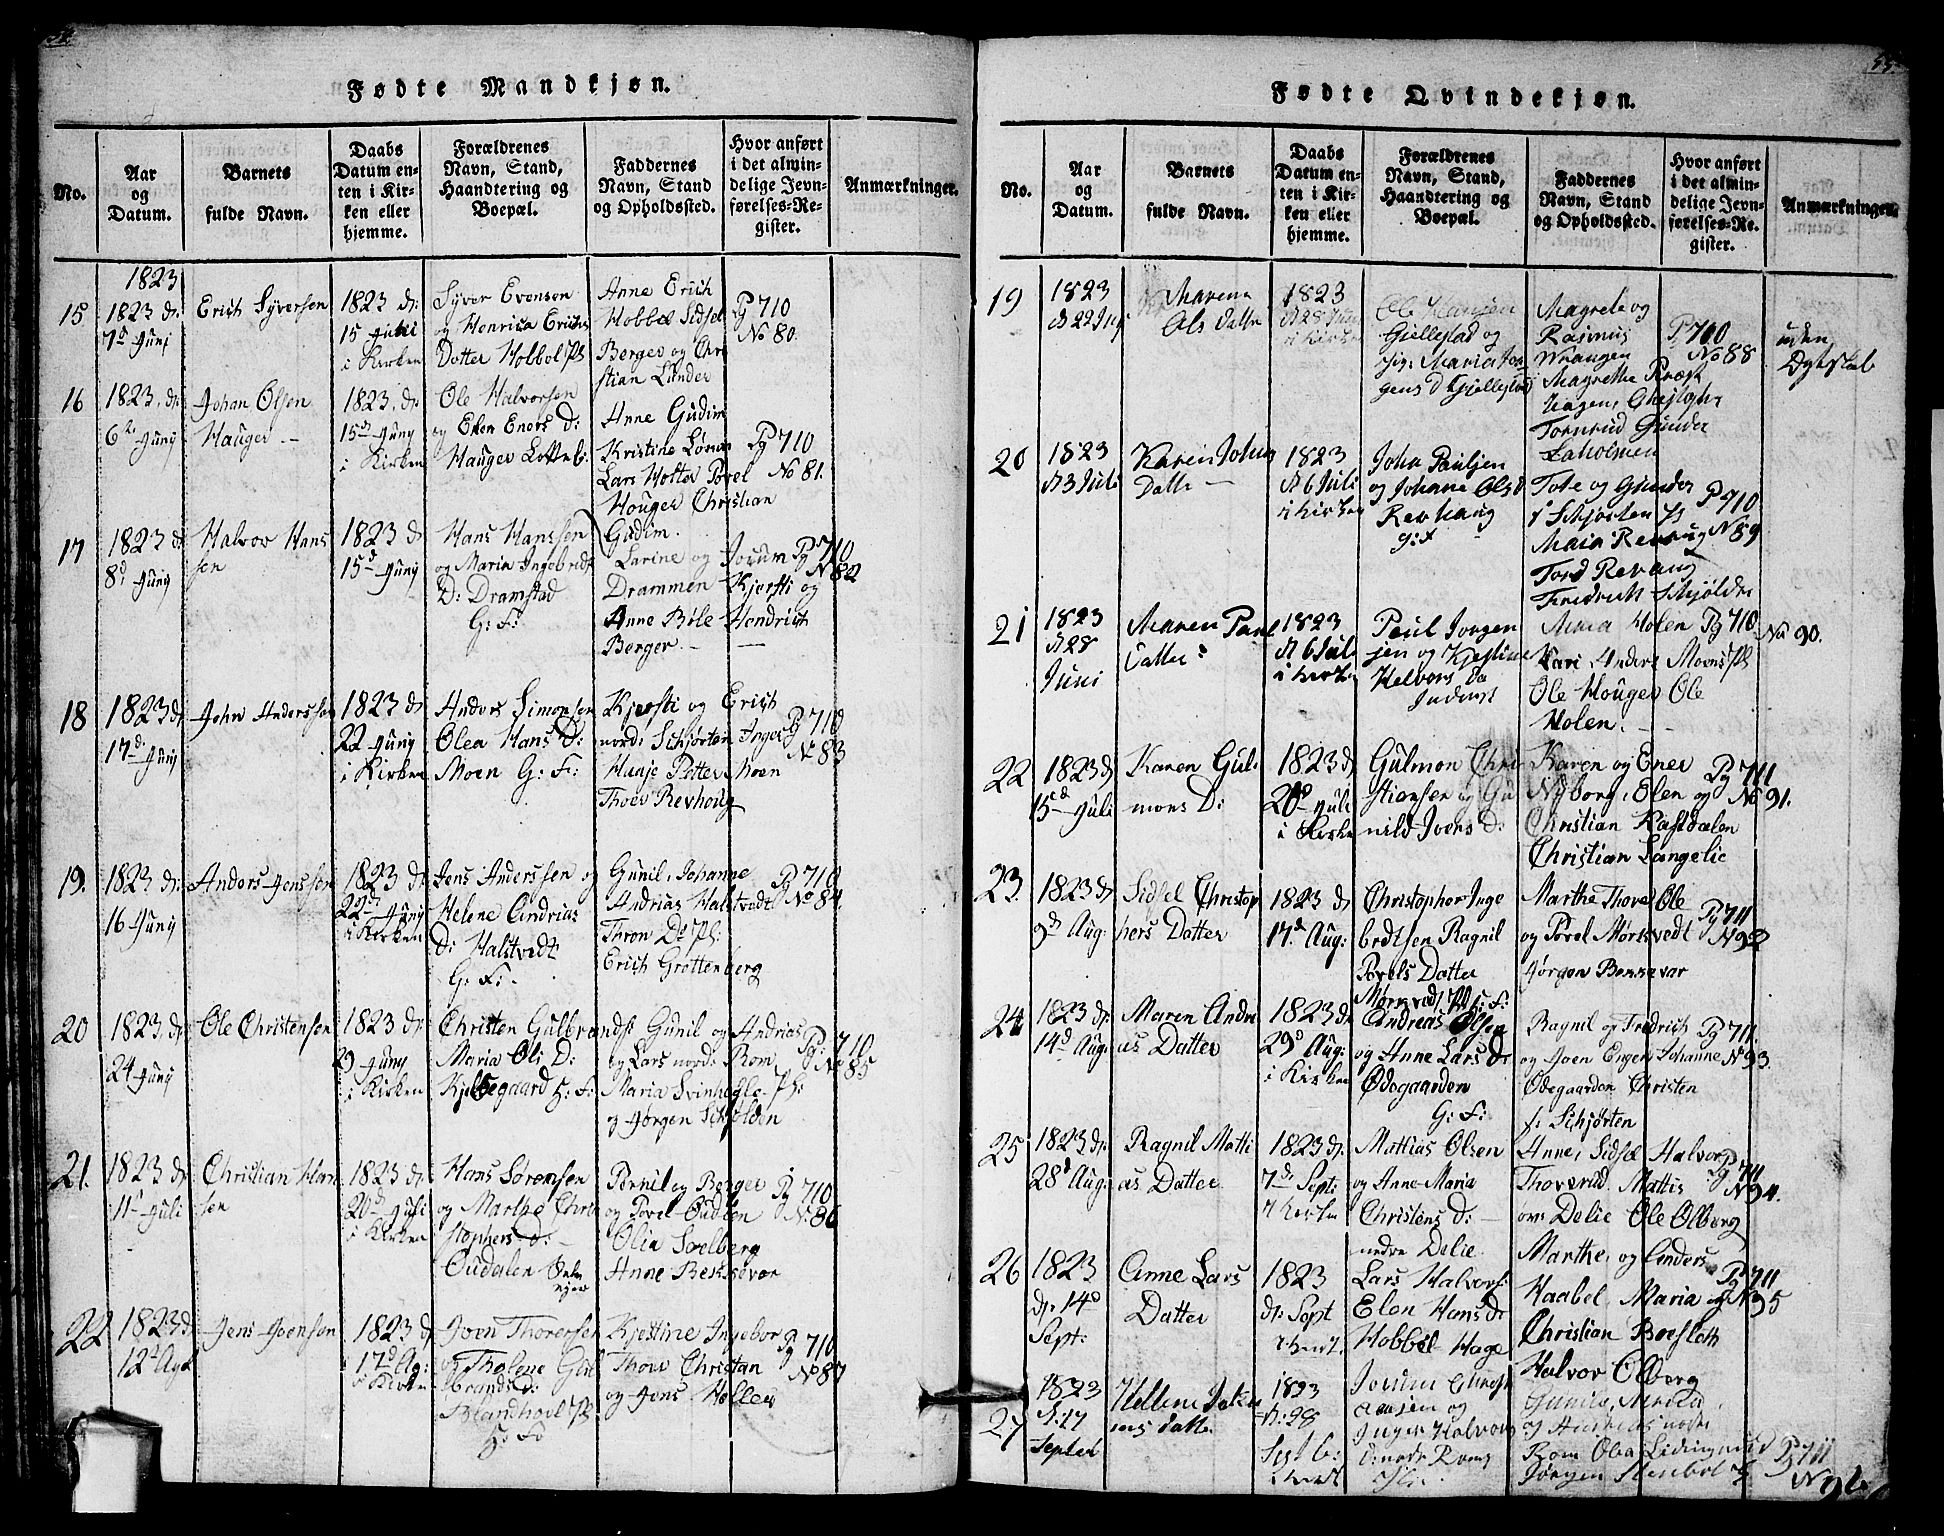 54.
Fødte Mandkjøn.
No.
Aar og Datum.
Barnets fulde Navn.
Daabs Datum enten i Kirken eller hjemme.
Forældrenes Navn, Stand, Haandtering og Boepæl.
Faddernes Navn, Stand og Opholdssted.
Hvor anført i det almindelige Jevnførelses-Register.
Anmærkninger.
1823
15
1823 d:
7d Juni
Erich Syversen
1823 d:
15 Juni
i Kirken
Syver Evensen
og Henrica Erichs
Dotter Hobbøl Pl
Anne Erich
Hobbøl Sidsel
Berger og Chri
stian Lunder
Pg 710
No 80.
16
1823. d:
6d Juny
Johan Olsen
Hauger
1823. d:
15d Juny
i Kirken
Ole Halvorsen
og Elen Eners D:
Hauger
Anne Gudim
Kristine
Lars Holter Povel
Houger Christian
Gudim.
Pg 710
No 81.
17
1823 d
8d Juny
Halvor Hans
sen
1823 d
15d Juny
Hans Hanssen
og Maria Ingebrids
D: Dramstad
G: F:
Larine og Jorum
Drammen Kjersti og
Anne Bøle Hendrich
Berger
Pg 710
No 82
18
1823 d:
17d: Juny
John Anderssen
1823 d
22 Juny
i Kirken
Anders Simonsen
Olea Hans D:
Moen G: F:
Kjersti og Erich
nord: Schjørten Inger
Hunje Petter Moen
Thoer Revhoug
Pg 710
No 83
19.
1823 d:
16 Juny
Anders Jenssen
1823 d:
22d Juny
i Kirken
Jens Anderssen og
Helene Andrias
D: Halstvedt
G: F:
Gunil, Johanne
Andrias Halstvedt
Thron Do Pl:
Erich Grottenberg
Pg 710
No 84.
20
1823. d:
24 Juny
Ole Christensen
1823 d:
29 Juny
i Kirken
Christen Gulbrands:
Maria Oli D:
Kjelsegaard H: F:
Gunil og Andrias
og Lars nord: Rom
Maria Svinhøgle Pl:
og Jørgen Schjolden
Pg: 710
No 85
21.
1823 d:
11d Juli
Christian Han
sen
1823 d:
20d Juli
i Kirken
Hans Sørensen
og Marthe Chri
stophers d:
Oudalen
Pernil og Berger
og Povel Oudalen
Olia Soelberg
Anne Bekkevar
Pg 710
No: 86
22
1823 d
12d Agst
Jens Joensen
1823 d:
17d Ag:
i Kirken
Joen Thorersen
og Tholene Gul
brands d:
H: F:
Kjestine Ingebor
Thore Christian
og Jens Holler
Pg 710
No 87
55.
Fødte Qvindekjøn.
No.
Aar og Datum.
Barnets fulde Navn.
Daabs Datum enten i Kirken eller hjemme.
Forældrenes Navn, Stand, Haandtering og Boepæl.
Faddernes Navn, Stand og Opholdssted.
Hvor anført i det almindelige Jevnførelses-Register.
Anmærkninger.
19
1823
d 22 Juni
Marena
Ols Datter
1823
d 28 Juni
i Kirken
Ole Hansen
Gjellestad og
Maria Jør
gens D Gjellestad
Magrete og
Rasmus
Wraugen
Magrethe Præst
Hagen,
Tornrud Gunder
Laholmen
Pg 710
No 88
uden
Ægteskab
20
1823
d 3 Juli
Karen Johns
Datter
1823
d 6 Juli
i Kirken
John Paulsen
og Johane Ols d
Revhaug
G: F
Tore og Gunder
Schjørten Pl
Maria Revhaug
Tord Revhaug
Fredrich Schjølden
Pg 710
No 89
21
1823
d 28
Juni
Maren Paul
Datter
1823
d 6 Juli
i Kirken
Paul Jørgen
sen og Kjestine
Helvors Da
Maria Holen
Kari Anders Moens Pl
Ole Houger Ole
Holen.
Pg 710
No 90.
22
1823 d
15d Juli
Karen Gul
mons D:
1823 d
20d Juli
i Kirke
Gulmon Chri
stiansen og Gu
nild Ivers D:
Karen og Ener
Nyborg, Elen og
Christian Kastdalen
Christian Langelie
Pg 711
No 91.
23.
1823 d
9d Aug:
Sidsel Christop
hers Datter
1823 d
17d Aug:
Christopher Inge
bretsen Ragnil
Povels Datter
Mørkvedt Pl: G: F:
Marthe Thore Ole
og Povel Mørkvedt
Jørgen Bekkevar
Pg 711
No 92
24
1823 d:
14d Aug:
Maren Andre
as Datter
1823 d:
29d Aug:
i Kirken
Andreas Olsen
og Anne Lars D:
Ødegaarden
G: F:
Ragnil og Fredrich
og Joen Enger Johanne
Ødegaarden Christen
Schjørten
Pg 711.
No 93.
25
1823 d:
28d Aug:
Ragnil Matti
as Datter
1823 d:
7d Sept:
i Kirken
Mattias Olsen
og Anne Maria
Christens D:
nedre Delie
Anne, Sidsel Halvor
Thovsrud, Mattis
øvr: Delie Ole Olberg
Pg 711
No 94.
26
1823
d: 14d
Sept:
Anne Lars
Datter
1823
d: Sept
Lars Halvors:
Elen Hans D:
Hobbøl Hage
Marthe, og Anders
Haabel, Maria og
Christian Boesleth
Halvor Olberg
Pg 711
No 95
27
1823
d: 17
Septeb
Hellene
Datter
1823
d: 28
Septb:
Jorum
og
Inger Halvors
D:
Gunild,
og Andreas nordre
Rom Olea
Jørgen Stenbøl
Pg 711
No 96